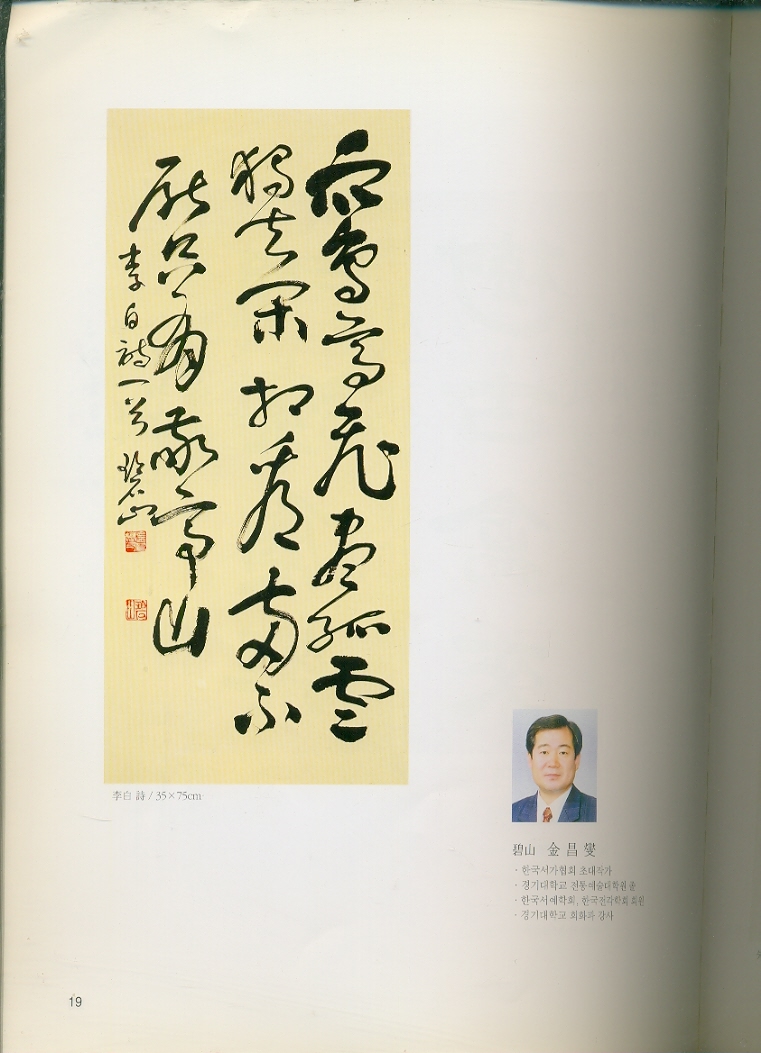 衆鳥高飛盡孤雲
獨去閑相看兩不
厭只有敬亭山
李白詩一首 碧山
李白 詩 / 35×75cm
碧山 金昌燮
· 한국서가협회 초대작가
· 경기대학교 전통예술대학원 졸
· 한국서예학회, 한국전각학회 회원
· 경기대학교 회화과 강사
19